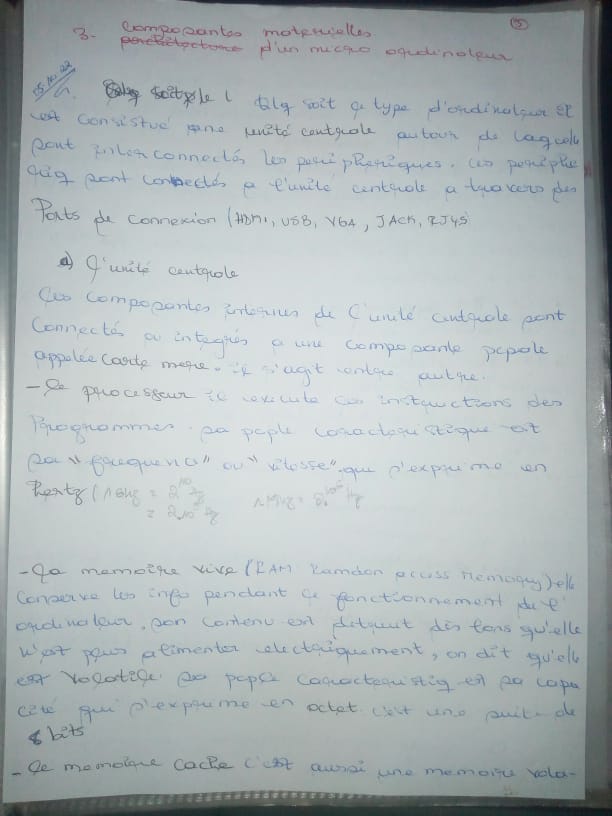 5
3. Composantes materielles
d'un micro ordinateur
qlq soit le type d'ordinateur il
est consistué une unité centrale autour de laquelle
sont interconnectés les peripheriques. ces periphe
riq sont connectés a l'unité centrale a travers des
Ports de connexion (HDMI, USB, VGA, JACK, RJ45
a) L'unité centrale
Les composantes internes de l'unité centrale sont
connectés ou integrés a une composante pcpale
appelée carte mere. il s'agit entre autre.
- Le processeur il execute les instructions des
Programmes. sa pcple caracteristique est
sa "frequence" ou "vitesse" qui s'exprime en
hertz (1GHz =
- La memoire vive (RAM Ramdon access Memory) elle
conserve les info pendant le fonctionnement de l'
ordinateur, son contenu est detruit dès lors qu'elle
n'est plus alimenter electriquement, on dit qu'elle
est volatile. sa pcple caracteristiq est sa capa
cité qui s'exprime en octet. c'est une suite de
8 bits
- Le memoire cache c'est aussi une memoire vola-